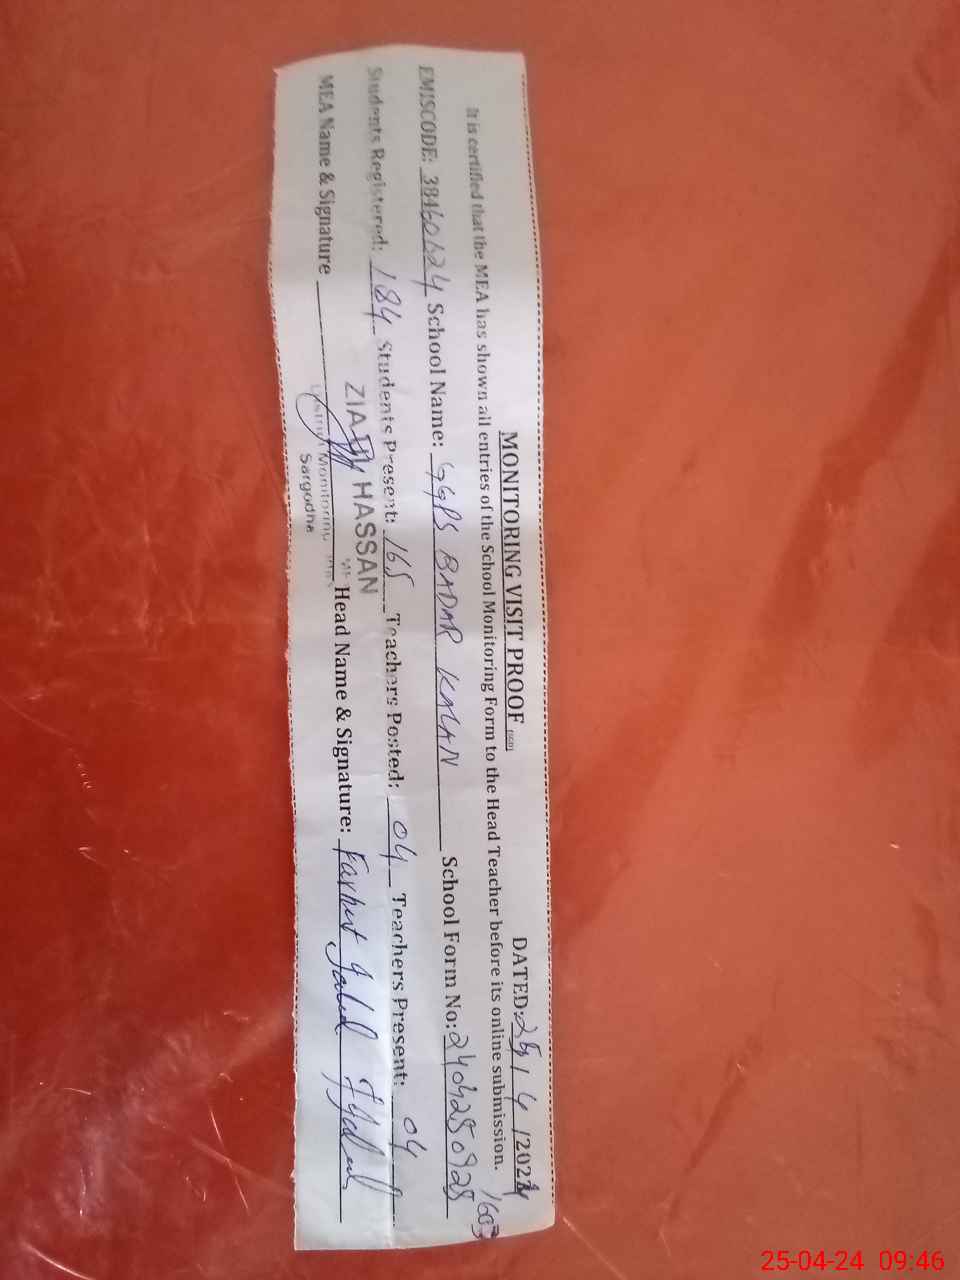 MONITORING VISIT PROOF
DATED: 25/4/2024
It is certified that the MEA has shown all entries of the School Monitoring Form to the Head Teacher before its online submission.
1603
EMISCODE: 38460624 School Name: GGPS BADAR KALAN School Form No: 2404250928
Students Registered: 184 Students Present: 165 Teachers Posted: 04 Teachers Present: 04
MEA Name & Signature Head Name & Signature: Farhat Jabed
ZIA HASSAN
District Monitoring
Sargodha
25-04-24 09:46